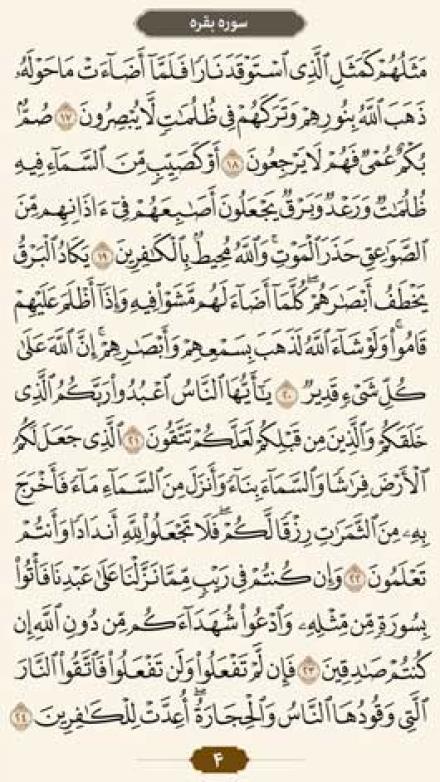 سوره بقره
مَثَلُهُمْ كَمَثَلِ الَّذِى اسْتَوْقَدَ نَارًا فَلَمَّآ أَضَآءَتْ مَا حَوْلَهُۥ
ذَهَبَ اللَّهُ بِنُورِهِمْ وَتَرَكَهُمْ فِى ظُلُمَـٰتٍ لَّا يُبْصِرُونَ ١٧ صُمٌّۢ
بُكْمٌ عُمْىٌ فَهُمْ لَا يَرْجِعُونَ ١٨ أَوْ كَصَيِّبٍ مِّنَ السَّمَآءِ فِيهِ
ظُلُمَـٰتٌ وَرَعْدٌ وَبَرْقٌ يَجْعَلُونَ أَصَـٰبِعَهُمْ فِىٓ ءَاذَانِهِم مِّنَ
الصَّوَٰعِقِ حَذَرَ الْمَوْتِ ۚ وَاللَّهُ مُحِيطٌۢ بِالْكَـٰفِرِينَ ١٩ يَكَادُ الْبَرْقُ
يَخْطَفُ أَبْصَـٰرَهُمْ ۖ كُلَّمَآ أَضَآءَ لَهُم مَّشَوْا۟ فِيهِ وَإِذَآ أَظْلَمَ عَلَيْهِمْ
قَامُوا۟ ۚ وَلَوْ شَآءَ اللَّهُ لَذَهَبَ بِسَمْعِهِمْ وَأَبْصَـٰرِهِمْ ۚ إِنَّ اللَّهَ عَلَىٰ
كُلِّ شَىْءٍ قَدِيرٌ ٢٠ يَـٰٓأَيُّهَا النَّاسُ اعْبُدُوا۟ رَبَّكُمُ الَّذِى
خَلَقَكُمْ وَالَّذِينَ مِن قَبْلِكُمْ لَعَلَّكُمْ تَتَّقُونَ ٢١ الَّذِى جَعَلَ لَكُمُ
الْأَرْضَ فِرَٰشًا وَالسَّمَآءَ بِنَآءً وَأَنزَلَ مِنَ السَّمَآءِ مَآءً فَأَخْرَجَ
بِهِۦ مِنَ الثَّمَرَٰتِ رِزْقًا لَّكُمْ ۖ فَلَا تَجْعَلُوا۟ لِلَّهِ أَندَادًا وَأَنتُمْ
تَعْلَمُونَ ٢٢ وَإِن كُنتُمْ فِى رَيْبٍ مِّمَّا نَزَّلْنَا عَلَىٰ عَبْدِنَا فَأْتُوا۟
بِسُورَةٍ مِّن مِّثْلِهِۦ وَادْعُوا۟ شُهَدَآءَكُم مِّن دُونِ اللَّهِ إِن
كُنتُمْ صَـٰدِقِينَ ٢٣ فَإِن لَّمْ تَفْعَلُوا۟ وَلَن تَفْعَلُوا۟ فَاتَّقُوا۟ النَّارَ
الَّتِى وَقُودُهَا النَّاسُ وَالْحِجَارَةُ ۖ أُعِدَّتْ لِلْكَـٰفِرِينَ ٢٤
۴